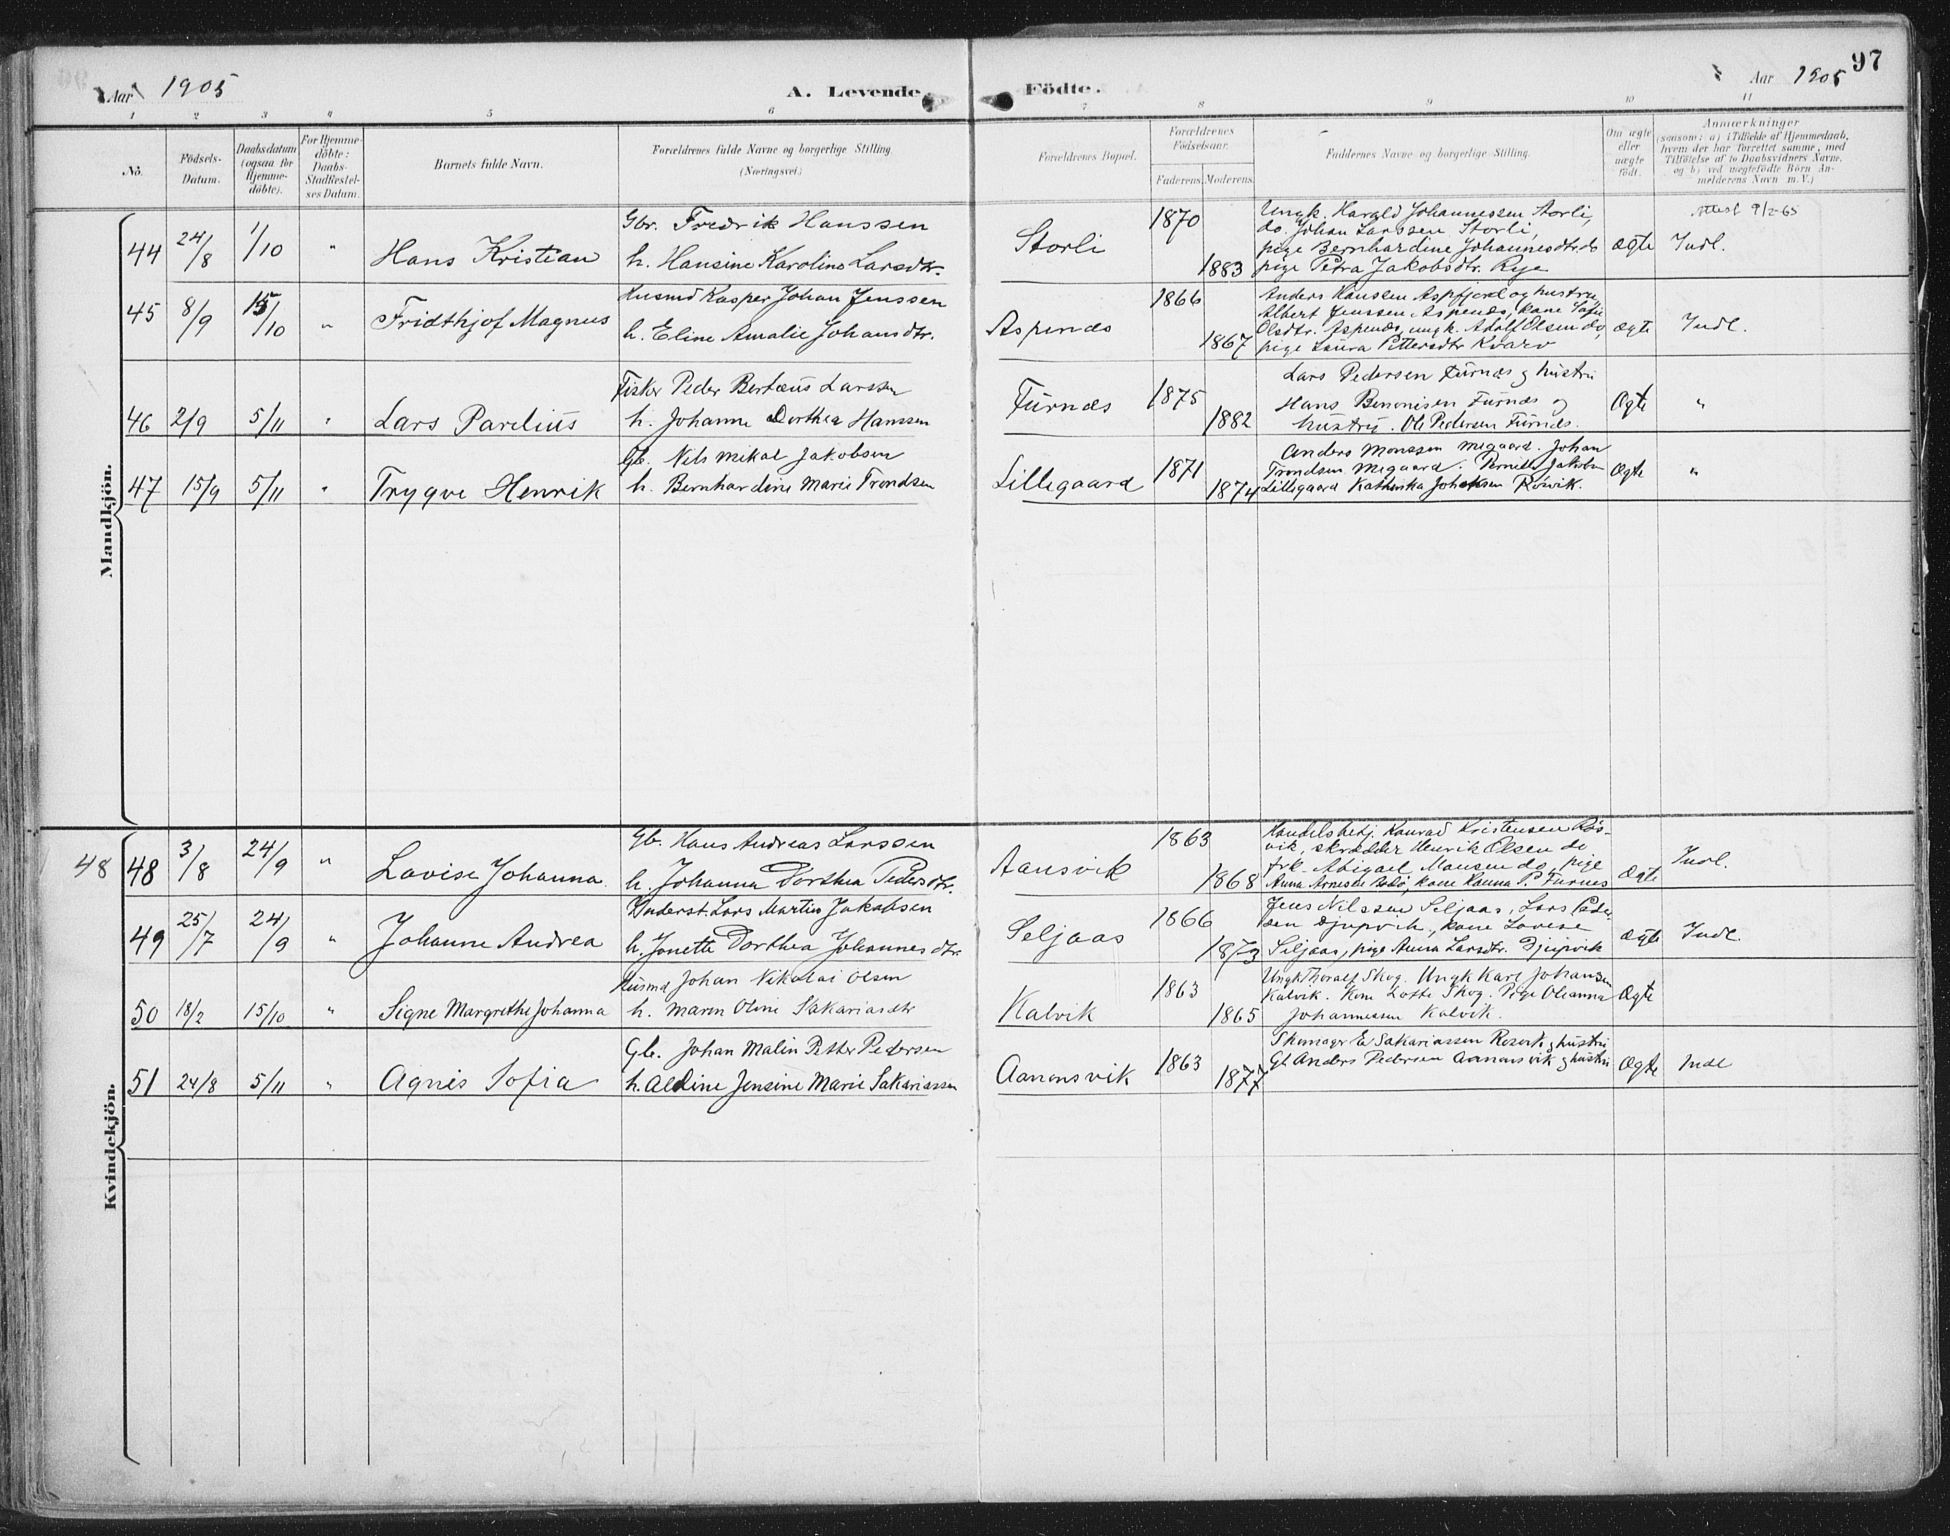 97
Aar 1905
A. Levende
Födte.
Aar 1905
1 2 3 4 5 6 7 8 9 10 11
No.
Födsels-
Datum.
Daabsdatum
(ogsaa for
Hjemme-
döbte).
For Hjemme-
döbte:
Daabs-
Stadfæstel-
ses Datum.
Barnets fulde Navn.
Forældrenes fulde Navne og borgerlige Stilling.
(Næringsvei.)
Forældrenes Bopæl.
Forældrenes
Födselsaar.
Faderens. Moderens.
Faddernes Navne og borgerlige Stilling.
Om ægte
eller
uægte
födt.
Anmærkninger
(saasom: a) i Tilfælde af Hjemmedaab,
hvem der har forrettet samme, med
Tilföielse af to Daabsvidners Navne,
og b) ved uægtefödte Börn An-
melderens Navn m. V.)
Mandkjön.
44 24/8 1/10 " Hans Kristian
Gbr. Fredrik Hanssen
h. Hansine Karoline Larsdtr.
Storli 1870 1883
Ungk. Harald Johannessen Storli,
do. Johan Larssen Storli,
pige Bernhardine Johannesdtr. do
pige Petra Jakobsdtr. Rye
ægte Indl.
Attest 9/2-65
45 8/9 15/10 " Fridthjof Magnus
Husmd Kasper Johan Jenssen
h. Eline Amalie Johansdtr.
Aspenæs 1866 1867
Anders Hanssen Aspfjord og hustru,
Albert Jenssen Aspenæs, kone
Olsdtr. Aspenæs, ungk. Adolf Olsen do,
pige Laura Pettersdtr Kvarv
ægte Indl.
46 2/9 5/11 " Lars Parelius
Fisker Peder Bertæus Larssen
h. Johanne Dorthea Hanssen
Furnæs 1875 1882
Lars Pedersen Furnæs og hustru
Hans Benonisen Furnæs og
hustru. Ole Pedersen Furnæs.
Ægte "
47 15/9 5/11 " Trygve Henrik
Gb. Nils Mikal Jakobsen
h. Bernhardine Marie Trondsen
Lillegaard 1871 1874
Anders Monssen Megaard. Johan
Trondsen Megaard. Pernille Jakobsen
Lillegaard Kathinka Johansen Røsvik.
Ægte "
Kvindekjön.
48 48 3/8 24/9 " Lovise Johanna
Gb. Hans Andreas Larssen
h. Johanna Dorthea Pedersdtr.
Aansvik 1863 1868
Handelsbetj. Konrad Kristensen Røs-
vik, skrædder Henrik Olsen do
frk. Abigael Monsen do, pige
Anna Arnesen Bodø, kone Hanna P. Furnes
Ægte Indl.
49 25/7 24/9 " Johanne Andrea
Inderst Lars Martin Jakobsen
h. Jonette Dorthea Johannesdtr.
Seljaas 1866 1873
Jens Nilssen Seljaas, Lars Peder
sen Djupvik, kone Lovise
Seljaas, pige Anna Larsdtr. Djupvik
ægte Indl.
50 18/2 15/10 " Signe Margrethe Johanna
Husmd Johan Nikolai Olsen
h. Maren Oline Sakariasdtr
Kalvik 1863 1865
Ungk Thoralf Skog. Ungk Karl Johansen
Kalvik. Kone Lotte Skog. Pige Oleanna
Johannessen Kalvik.
Ægte
51 24/8 5/11 " Agnes Sofia
Gb. Johan Malin Petter Pedersen
h. Aldine Jensine Marie Sakariassen
Aanonsvik 1863 1877
Skomager E Sakariassen Røsvik og hustru
Gb Anders Pedersen Aanonsvik og hustru
Ægte Indl